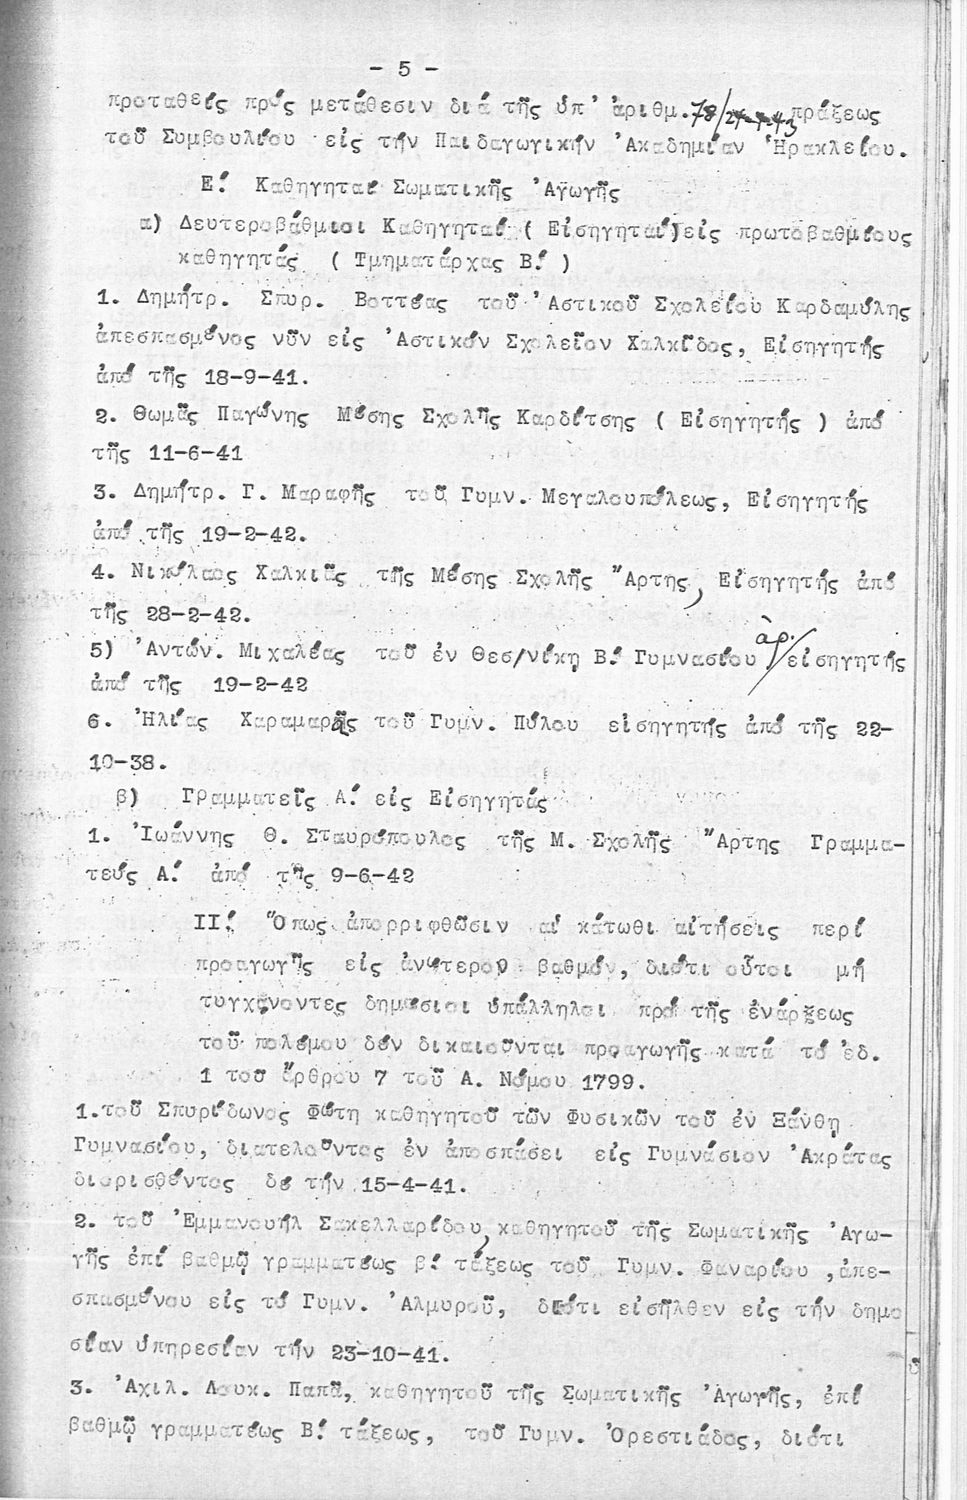 - 5 -
προταθείς πρός μετάθεσιν διά τῆς ὑπ' ἀριθμ. 78/24-4-43 πράξεως
τοῦ Συμβουλίου εἰς τήν Παιδαγωγικήν 'Ακαδημίαν 'Ηρακλείου.
Ε΄. Καθηγηταί Σωματικῆς 'Αγωγῆς
α) Δευτεροβάθμιοι Καθηγηταί ( Εἰσηγηταί)εἰς πρωτοβαθμίους
καθηγητάς ( Τμηματάρχας Β΄ )
1. Δημήτρ. Σπυρ. Βοττέας τοῦ 'Αστικοῦ Σχολείου Καρδαμύλης
ἀπεσπασμένος νῦν εἰς 'Αστικόν Σχολεῖον Χαλκίδος, Εἰσηγητής
ἀπό τῆς 18-9-41.
2. Θωμᾶς Παγώνης Μέσης Σχολῆς Καρδίτσης ( Εἰσηγητής ) ἀπό
τῆς 11-6-41
3. Δημήτρ. Γ. Μαραφῆς τοῦ Γυμν. Μεγαλουπόλεως, Εἰσηγητής
ἀπό τῆς 19-2-42.
4. Νικόλαος Χαλκιᾶς τῆς Μέσης Σχολῆς "Αρτης, Εἰσηγητής ἀπό
τῆς 28-2-42.
5) 'Αντών. Μιχαλέας τοῦ ἐν Θεσ/νίκῃ Β΄ Γυμνασίου ἀρ. εἰσηγητής
ἀπό τῆς 19-2-42
6. 'Ηλίας Χαραμαρᾶς τοῦ Γυμν. Πύλου εἰσηγητής ἀπό τῆς 22-
10-38.
β) Γραμματεῖς Α΄ εἰς Εἰσηγητάς
1. 'Ιωάννης Θ. Σταυρόπουλος τῆς Μ. Σχολῆς "Αρτης Γραμμα-
τεύς Α΄ ἀπό τῆς 9-6-42
ΙΙ΄. Ὅπως ἀπορριφθῶσιν αἱ κάτωθι αἰτήσεις περί
προαγωγῆς εἰς ἀνώτερον βαθμόν, διότι οὗτοι μή
τυγχάνοντες δημόσιοι ὑπάλληλοι πρό τῆς ἐνάρξεως
τοῦ πολέμου δέν δικαιοῦνται προαγωγῆς κατά τό ἐδ.
1 τοῦ ἄρθρου 7 τοῦ Α. Νόμου 1799.
1.τοῦ Σπυρίδωνος Φώτη καθηγητοῦ τῶν Φυσικῶν τοῦ ἐν Ξάνθῃ
Γυμνασίου, διατελοῦντος ἐν ἀποσπάσει εἰς Γυμνάσιον 'Ακράτας
διορισθέντος δέ τήν 15-4-41.
2. τοῦ 'Εμμανουήλ Σακελλαρίδου, καθηγητοῦ τῆς Σωματικῆς 'Αγω-
γῆς ἐπί βαθμῷ γραμματέως β΄ τάξεως τοῦ Γυμν. Φαναρίου ,ἀπε-
σπασμένου εἰς τό Γυμν. 'Αλμυροῦ, διότι εἰσῆλθεν εἰς τήν δημο
σίαν ὑπηρεσίαν τήν 23-10-41.
3. 'Αχιλ. Λουκ. Παπᾶ, καθηγητοῦ τῆς Σωματικῆς 'Αγωγῆς, ἐπί
βαθμῷ γραμματέως Β΄ τάξεως, τοῦ Γυμν. 'Ορεστιάδος, διότι